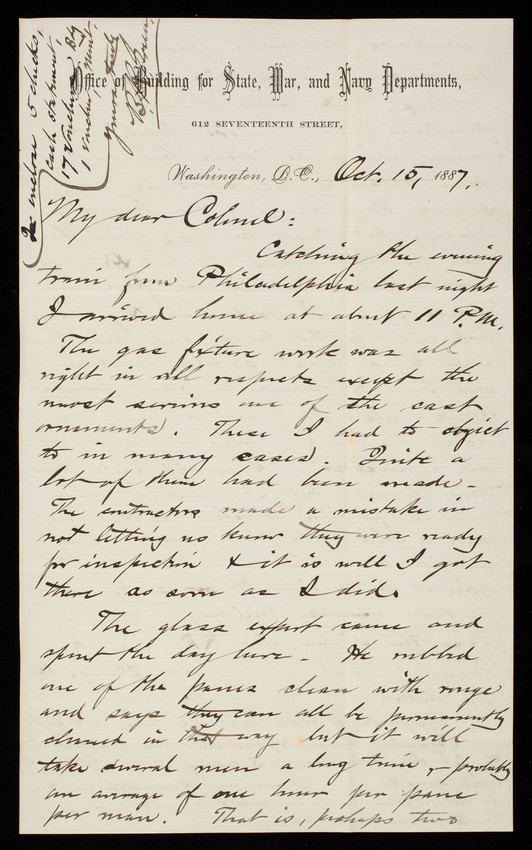 I inclose 5 checks,
cash statement,
17 vouchers Bldg
1 voucher
Yours truly
Office of Building for State, War, and Navy Departments,
612 SEVENTEENTH STREET,
Washington, D.C., Oct. 15, 1887.
My dear Colonel:
Catching the evening
train from Philadelphia last night
I arrived home at about 11 P.M.
The gas fixture work was all
right in all respects except the
most serious one of the cast
ornaments. These I had to object
to in many cases. Quite a
lot of them had been made -
The contractors made a mistake in
not letting us know they were ready
for inspection & it is well I got
there as soon as I did.
The glass expert came and
spent the day here - He rubbed
one of the panes clean with rouge
and says they can all be permanently
cleaned in that way but it will
take several men a long time, - probably
an average of one hour per pane
per man. That is, perhaps two